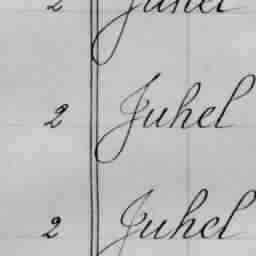 2 Juhel
2 Juhel
2 Juhel